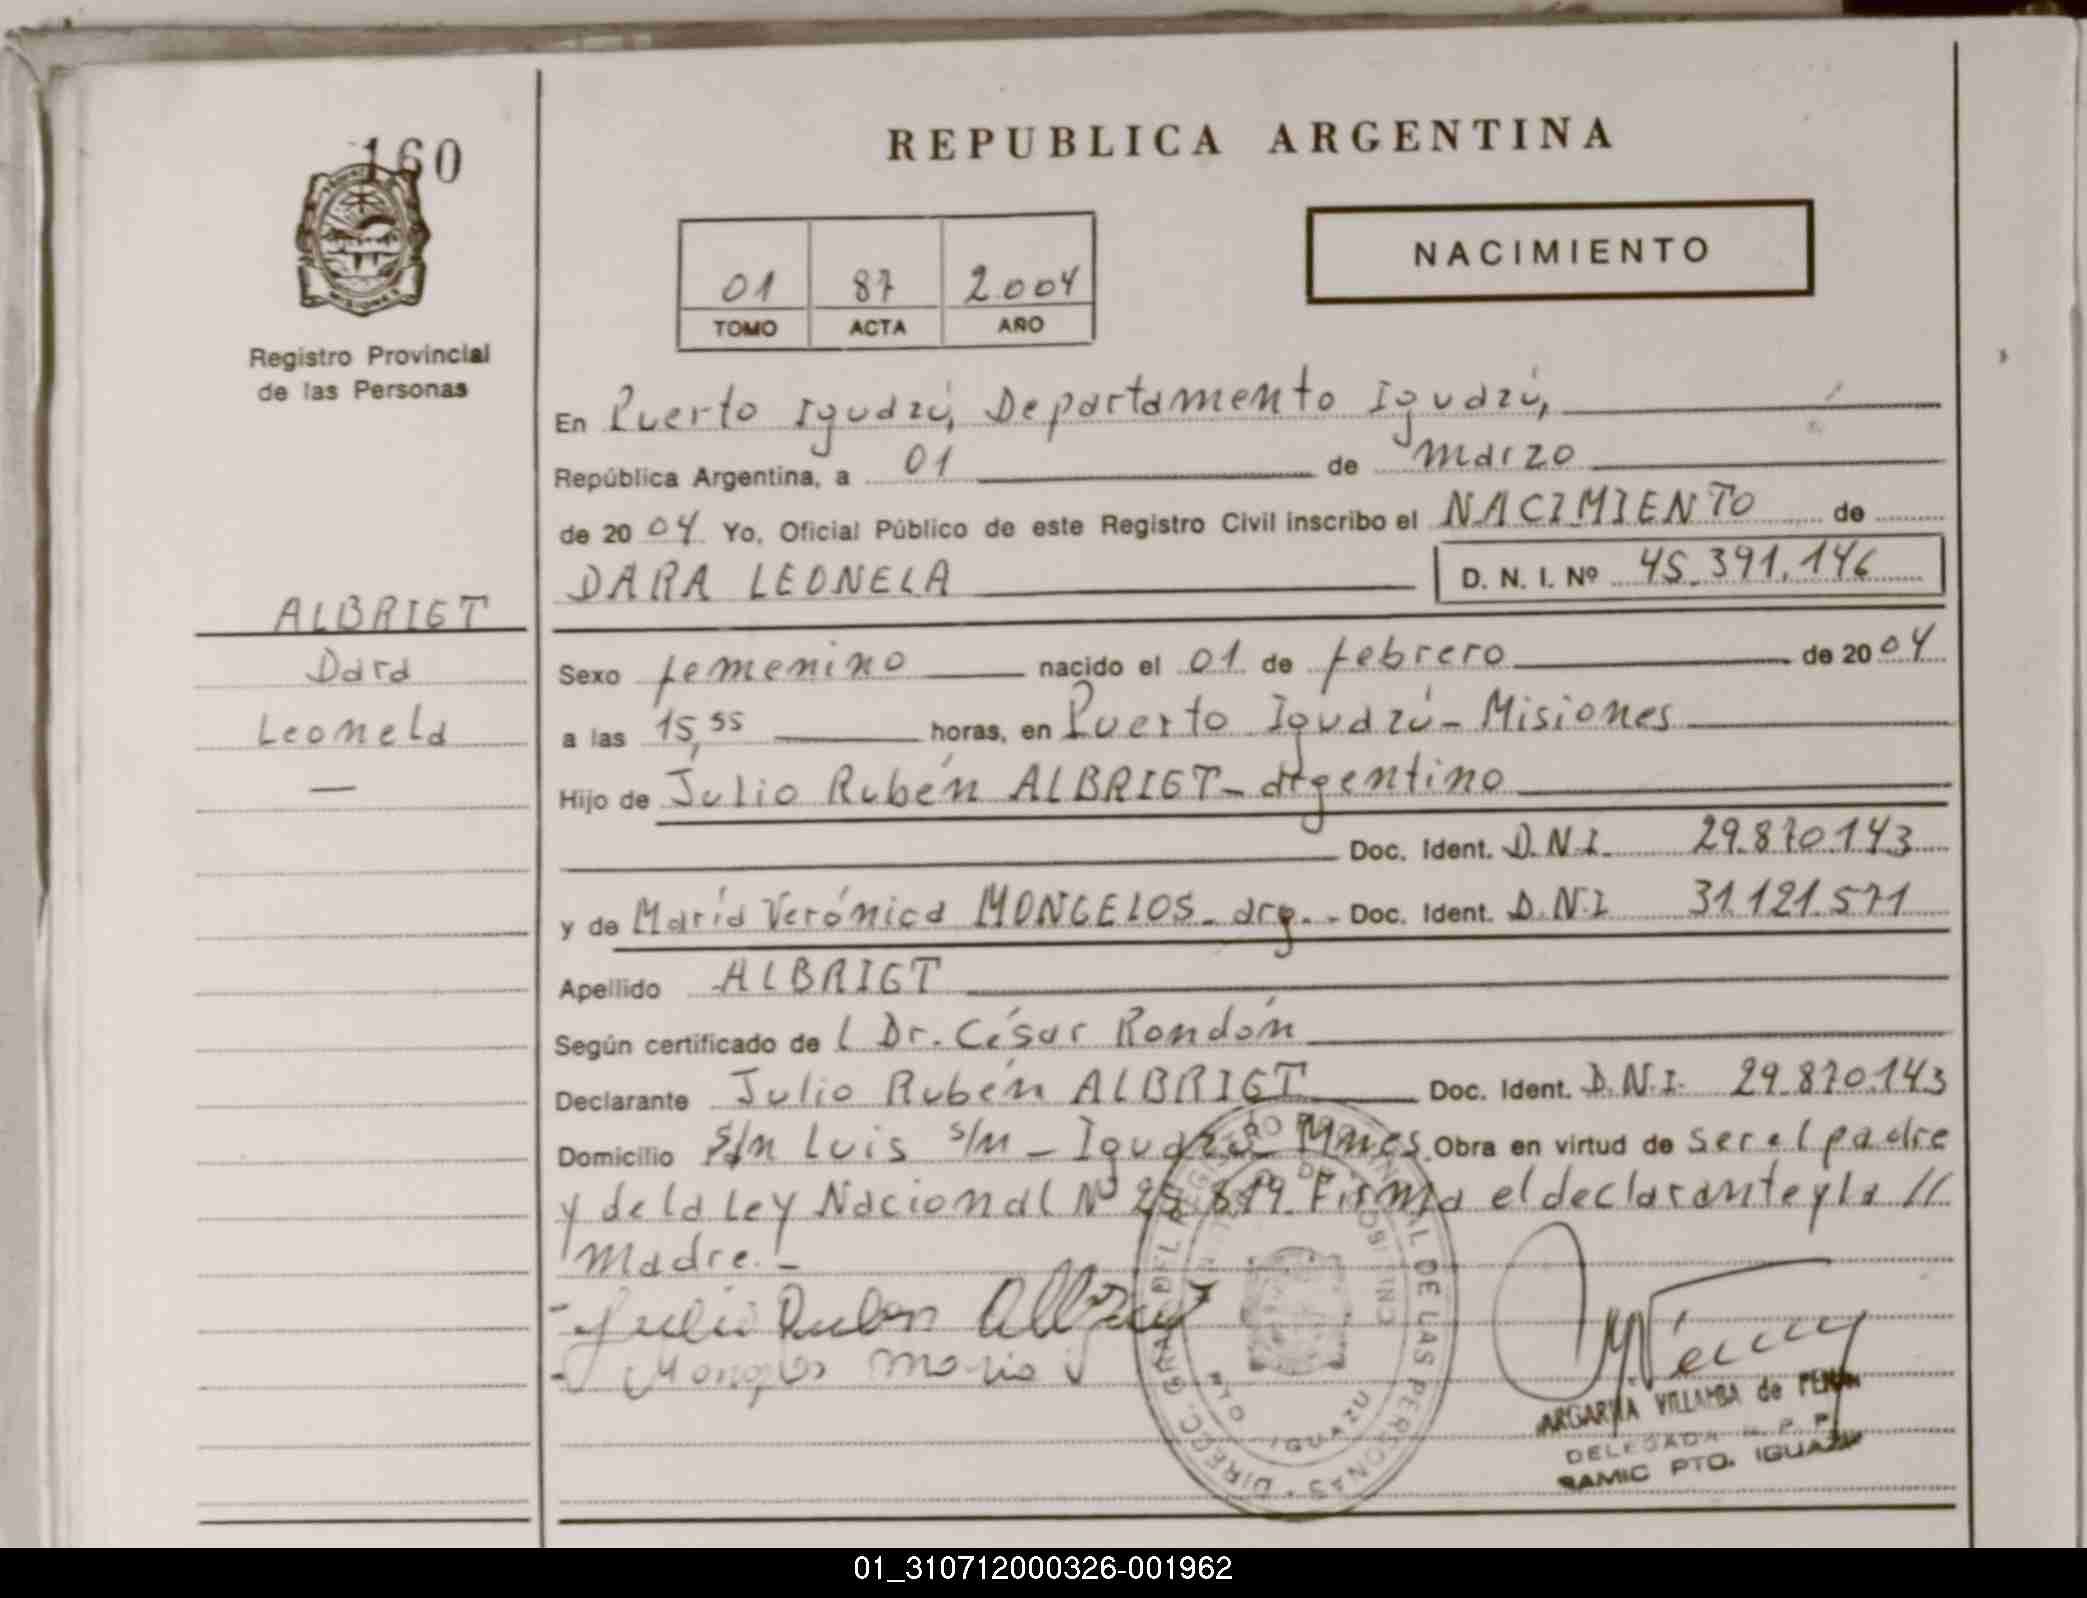 160
REPUBLICA ARGENTINA
NACIMIENTO
01 87 2004
TOMO ACTA AÑO
Registro Provincial
de las Personas
En Puerto Iguazú, Departamento Iguazú,
República Argentina, a 01 de marzo
de 2004 Yo, Oficial Público de este Registro Civil inscribo el NACIMIENTO de
DARA LEONELA D. N. I. Nº 45.391.146
ALBRIGT
Dara
Leonela
—
Sexo femenino nacido el 01 de febrero de 2004
a las 15,55 horas, en Puerto Iguazú - Misiones
Hijo de Julio Rubén ALBRIGT - argentino
Doc. Ident. D.N.I. 29.870.143
y de María Verónica MONGELOS - arg. - Doc. Ident. D.N.I 31.121.571
Apellido ALBRIGT
Según certificado de l Dr. César Rondón
Declarante Julio Rubén ALBRIGT Doc. Ident. D.N.I. 29.870.143
Domicilio Luis s/n - Iguazú Mnes. Obra en virtud de ser el padre
y de la Ley Nacional Nº Firma el declarante y la //
madre. -
- Julio Ruben
- Mongelos Maria V
DIRECC. GRAL DEL REGISTRO PROVINCIAL DE LAS PERSONAS
PTO IGUAZU
VILLALBA de
DELEGADA R. P. P.
SAMIC PTO. IGUAZU
01_310712000326-001962